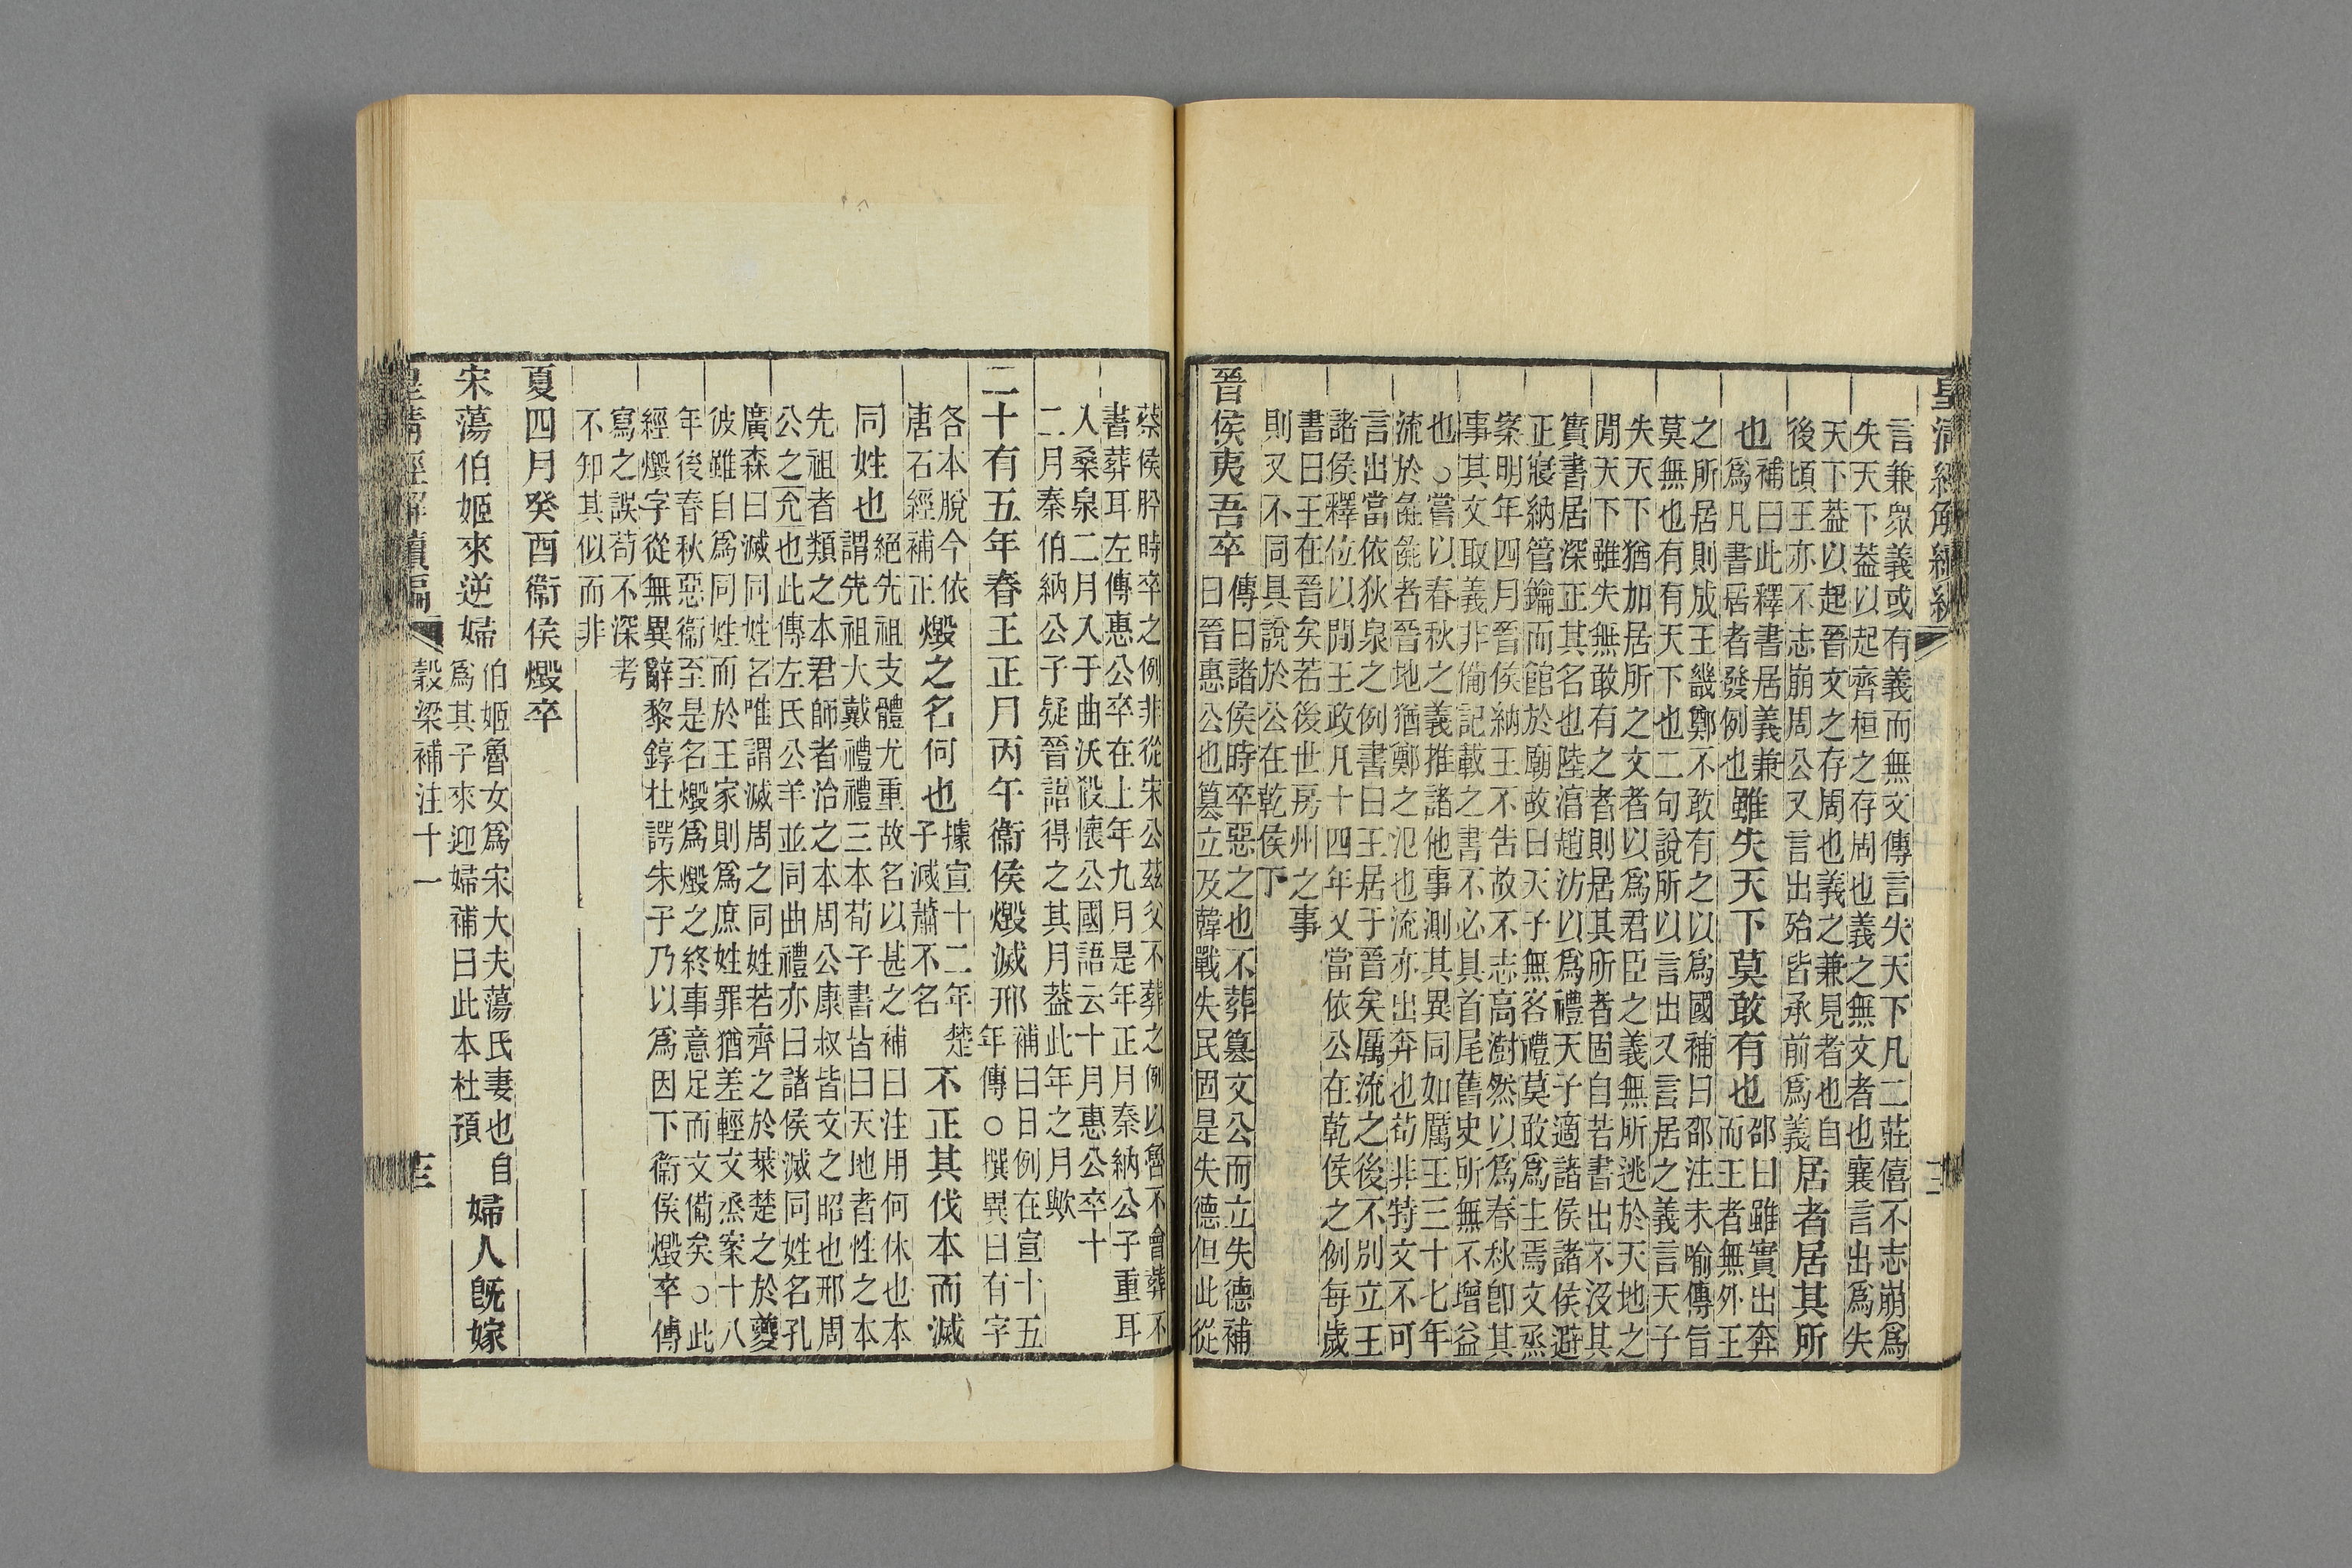 皇清經解續編
言兼眾義或有義而無文傳言失天下凡二莊僖不志崩爲
失天下葢以起齊桓之存周也義之無文者也襄言出爲失
天下葢以起晉文之存周也義之兼見者也自
後頃王亦不志崩周公又言出殆皆承前爲義
居者居其所
也
補曰此釋書居義兼
爲凡書居者發例也
雖失天下莫敢有也
邵曰雖實出奔
而王者無外王
之所居則成王畿鄭不敢有之以爲國補曰邵注未喻傳旨
莫無也有有天下也二句說所以言出又言居之義言天子
失天下猶加居所之文者以爲君臣之義無所逃於天地之
閒天下雖失無敢有之者則居其所者固自若書出不沒其
實書居深正其名也陸淳趙汸以爲禮天子適諸侯諸侯避
正寢納管鑰而館於廟故曰天子無客禮莫敢爲主焉文烝
案明年四月晉侯納王不告故不志高澍然以爲春秋卽其
事其文取義非備記載之書不必具首尾舊史所無不增益
也○嘗以春秋之義推諸他事測其異同如厲王三十七年
流於彘彘者晉地猶鄭之氾也流亦出奔也苟非特文不可
言出當依狄泉之例書曰王居于晉矣厲流之後不別立王
諸侯釋位以閒王政凡十四年又當依公在乾侯之例每歲
書曰王在晉矣若後世房州之事
則又不同具說於公在乾侯下
晉侯夷吾卒
傳曰諸侯時卒惡之也不葬篡文公而立失德補
曰晉惠公也篡立及韓戰失民固是失德但此從
蔡侯肸時卒之例非從宋公茲父不葬之例以魯不會葬不
書葬耳左傳惠公卒在上年九月是年正月秦納公子重耳
入桑泉二月入于曲沃殺懷公國語云十月惠公卒十
二月秦伯納公子疑晉語得之其月葢此年之月歟
二十有五年春王正月丙午衞侯燬滅邢
補曰日例在宣十五
年傳○撰異曰有字
各本脫今依
唐石經補正
燬之名何也
據宣十二年楚
子滅蕭不名
不正其伐本而滅
同姓也
絕先祖支體尤重故名以甚之補曰注用何休也本
謂先祖大戴禮禮三本荀子書皆曰天地者性之本
先祖者類之本君師者治之本周公康叔皆文之昭也邢周
公之允也此傳左氏公羊並同曲禮亦曰諸侯滅同姓名孔
廣森曰滅同姓名唯謂滅周之同姓若齊之於萊楚之於夔
彼雖自爲同姓而於王家則爲庶姓罪猶差輕文烝案十八
年後春秋惡衞至是名燬爲燬之終事意足而文備矣○此
經燬字從無異辭黎錞杜諤朱子乃以爲因下衞侯燬卒傳
寫之誤苟不深考
不知其似而非
夏四月癸酉衞侯燬卒
宋蕩伯姬來逆婦
伯姬魯女爲宋大夫蕩氏妻也自
爲其子來迎婦補曰此本杜預
婦人旣嫁
皇清經解續編
穀梁補注十一